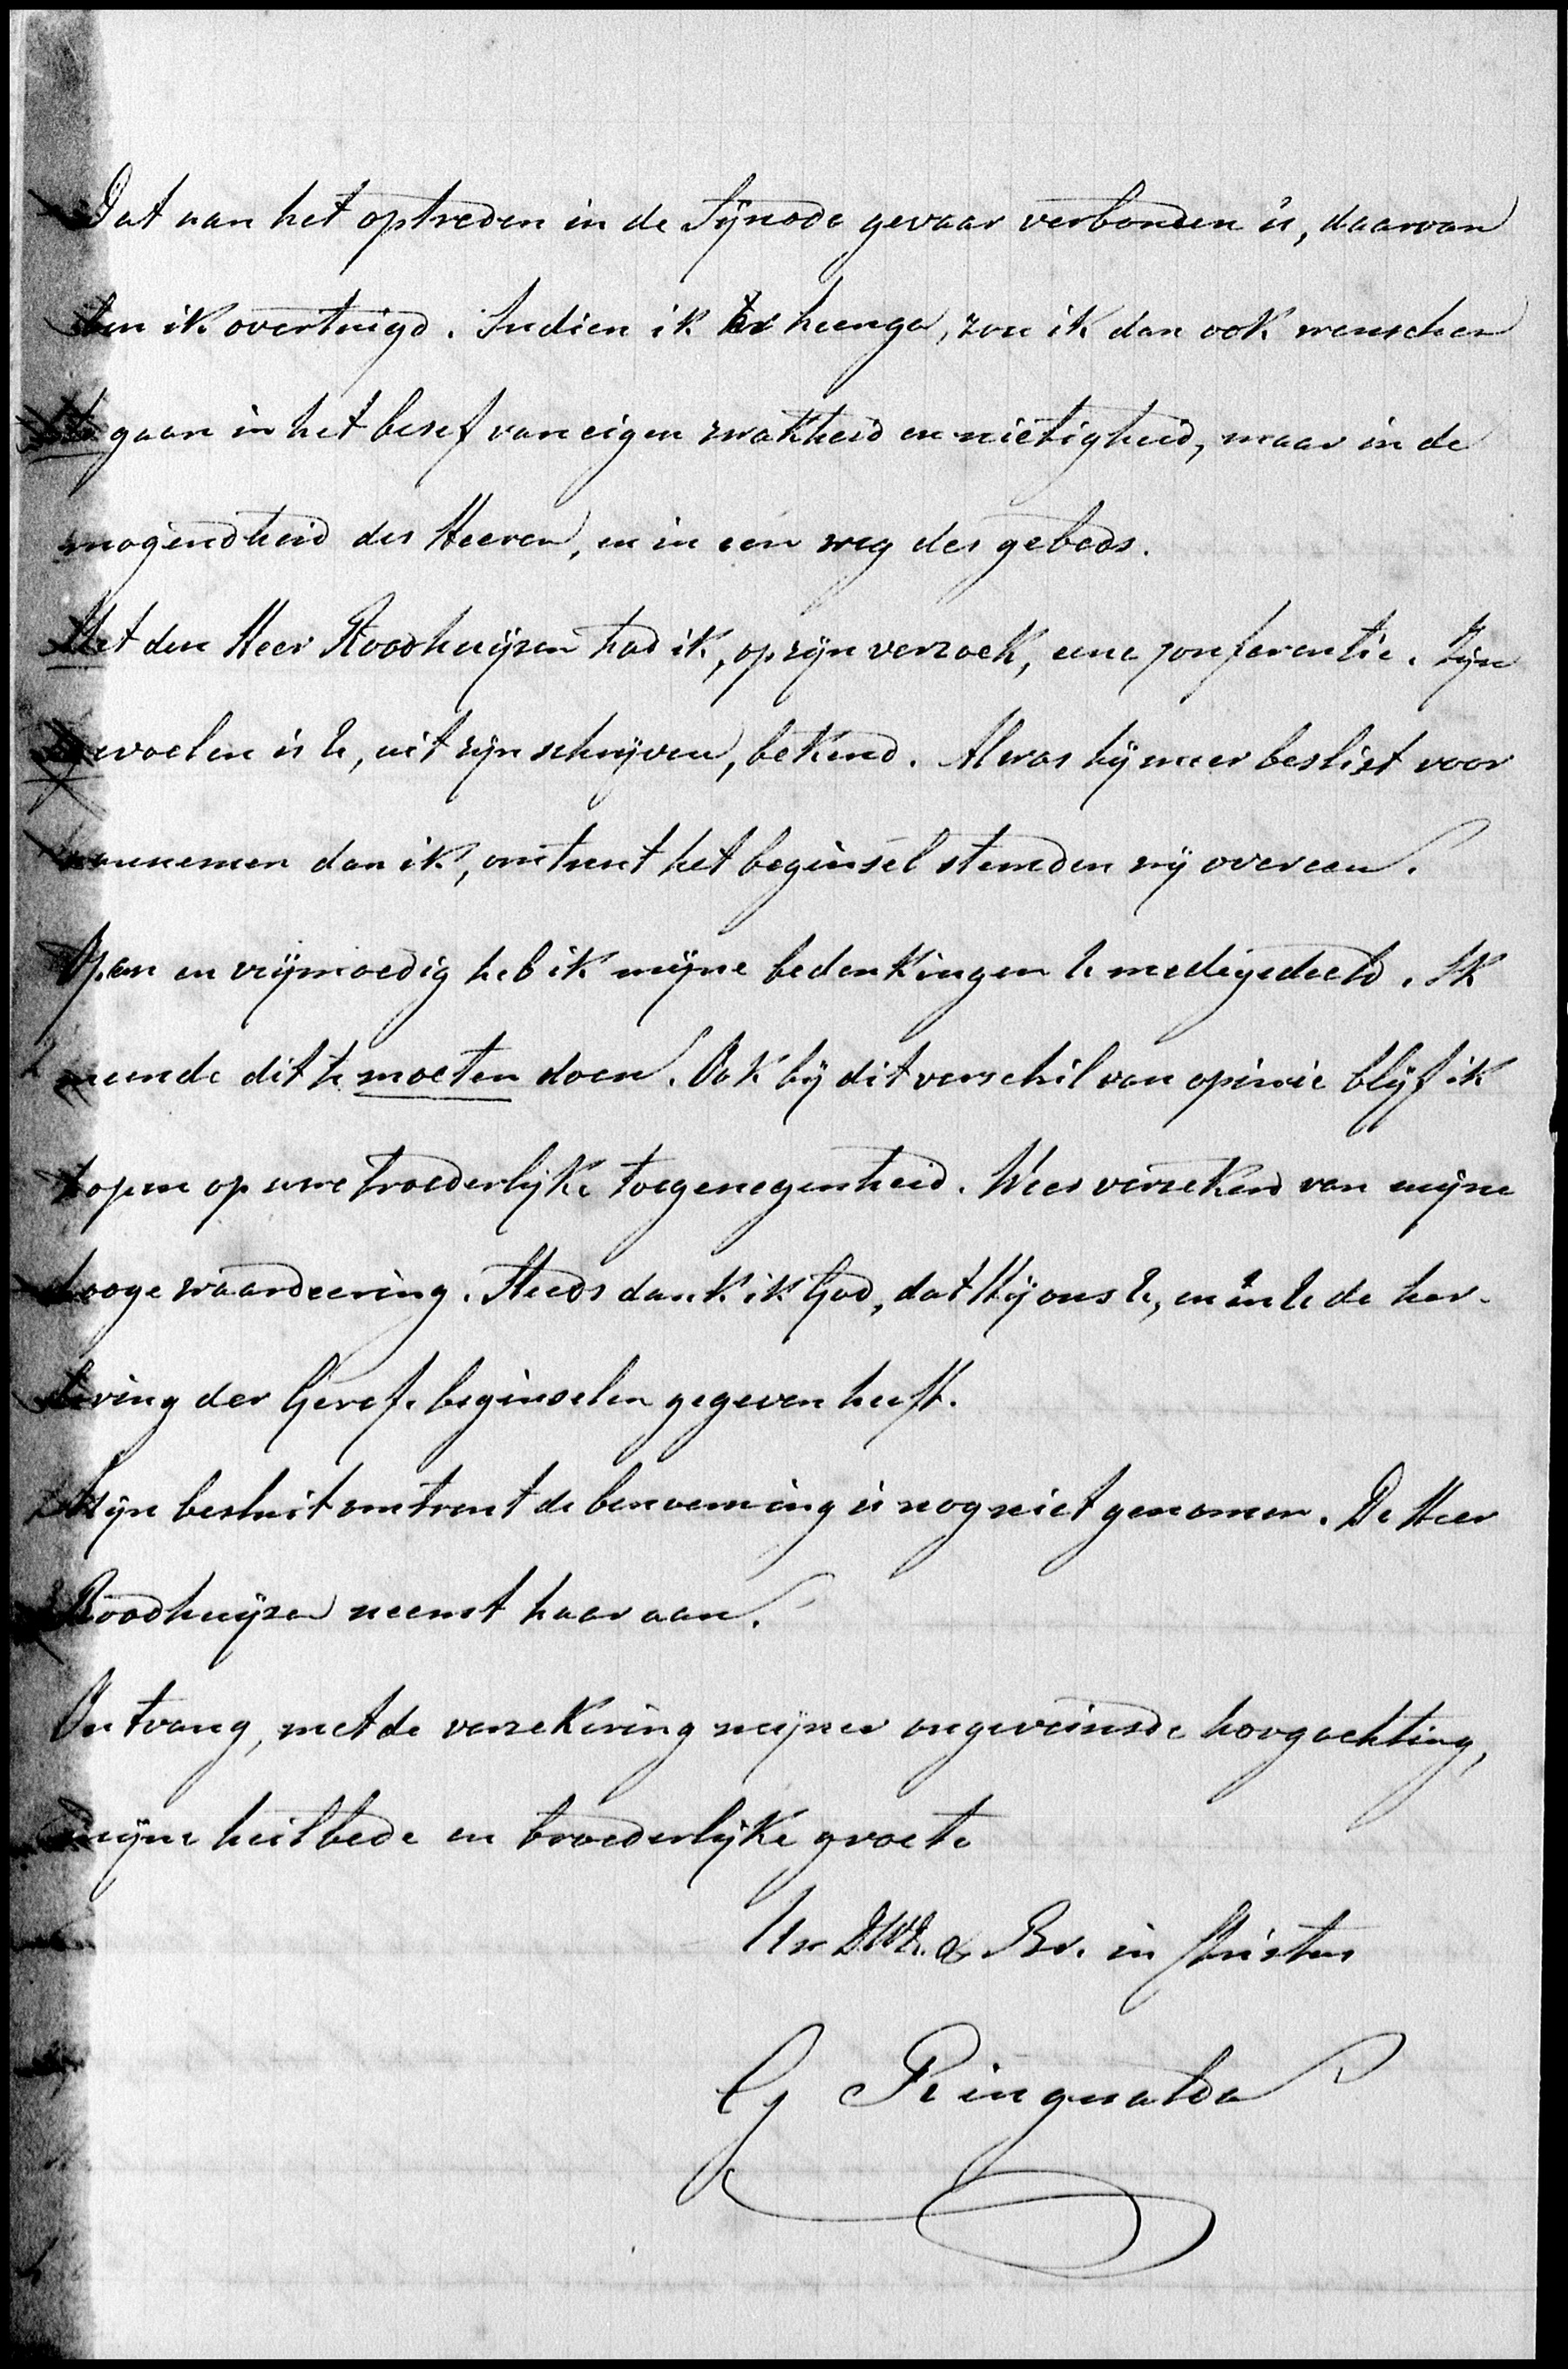 Dat aan het optreden in de Synode gevaar verbonden is, daarvan
ben ik overtuigd. Indien ik er heenga, zou ik dan ook wenschen
te gaan in het besef van eigen zwakheid en nietigheid, maar in de
mogendheid des Heeren, en in een weg des gebeds.
Met den Heer Roodhuijzen had ik, op zijn verzoek, eene conferentie. Zijn
gevoelen is U, uit zijn schrijven, bekend. Al was hij meer beslist voor
aannemen dan ik, omtrent het beginsel stemden wij overeen.
Open en vrijmoedig heb ik mijne bedenkingen U medegedeeld. Ik
meende dit te moeten doen. Ook bij dit verschil van opinie blijf ik
hopen op uwe broederlijke toegenegenheid. Wees verzekerd van mijne
hooge waardeering. Steeds dank ik God, dat Hij ons U, en in U de her-
leving der Geref. beginselen gegeven heeft.
Mijn besluit omtrent de benoeming is nog niet genomen. De Heer
Roodhuijzen neemt haar aan.
Ontvang, met de verzekering mijner ongeveinsde hoogachting,
mijne heilbede en broederlijke groete
Uw DWD. & Br. in Christus
G Ringnalda